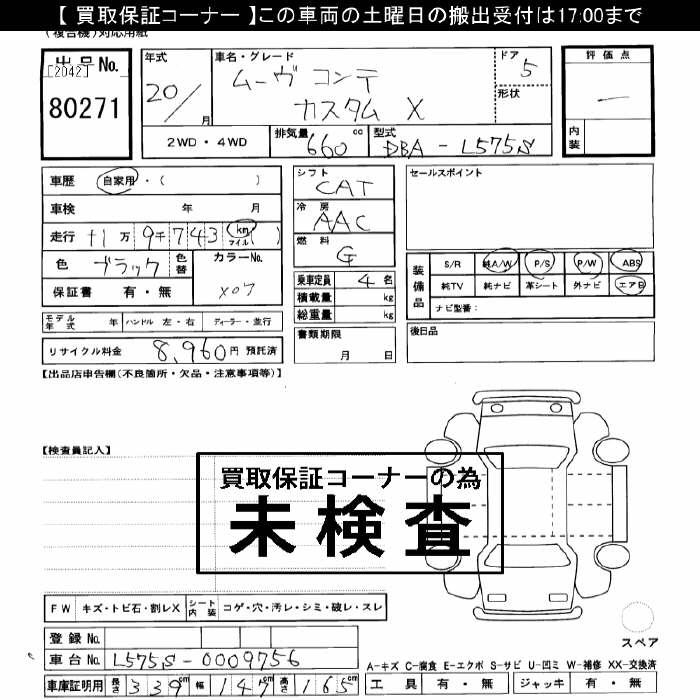 【 買取保証コーナー 】この車両の土曜日の搬出受付は17:00まで
(複合機)対応用紙
出品No.
[2042]
80271
年式
20/
月
車名・グレード
ムーヴ コンテ
カスタム X
ドア
5
形状
2WD・4WD
排気量
660
cc
型式
DBA - L575S
評価点
―
内装
車歴 自家用・( )
車検 年 月
走行 11万9千743 km マイル ( )
色 ブラック 色替
カラーNo.
X07
保証書 有・無
モデル年式 年 ハンドル 左・右 ディーラー・並行
リサイクル料金 8,960円 預託済
シフト
CAT
冷房
AAC
燃料
G
乗車定員 4 名
積載量 kg
総重量 kg
書類期限
月 日
セールスポイント
装備品
S/R 純A/W P/S P/W ABS
純TV 純ナビ 革シート 外ナビ エアB
ナビ型番:
後日品
【出品店申告欄(不良箇所・欠品・注意事項等)】
【検査員記入】
買取保証コーナーの為
未検査
FW キズ・トビ石・割レX シート内装 コゲ・穴・汚レ・シミ・破レ・スレ
登録No.
車台No. L575S-0009756
車庫証明用 長さ 339cm 幅 147cm 高さ 165cm
スペア
A-キズ C-腐食 E-エクボ S-サビ U-凹ミ W-補修 XX-交換済
工具 有・無 ジャッキ 有・無